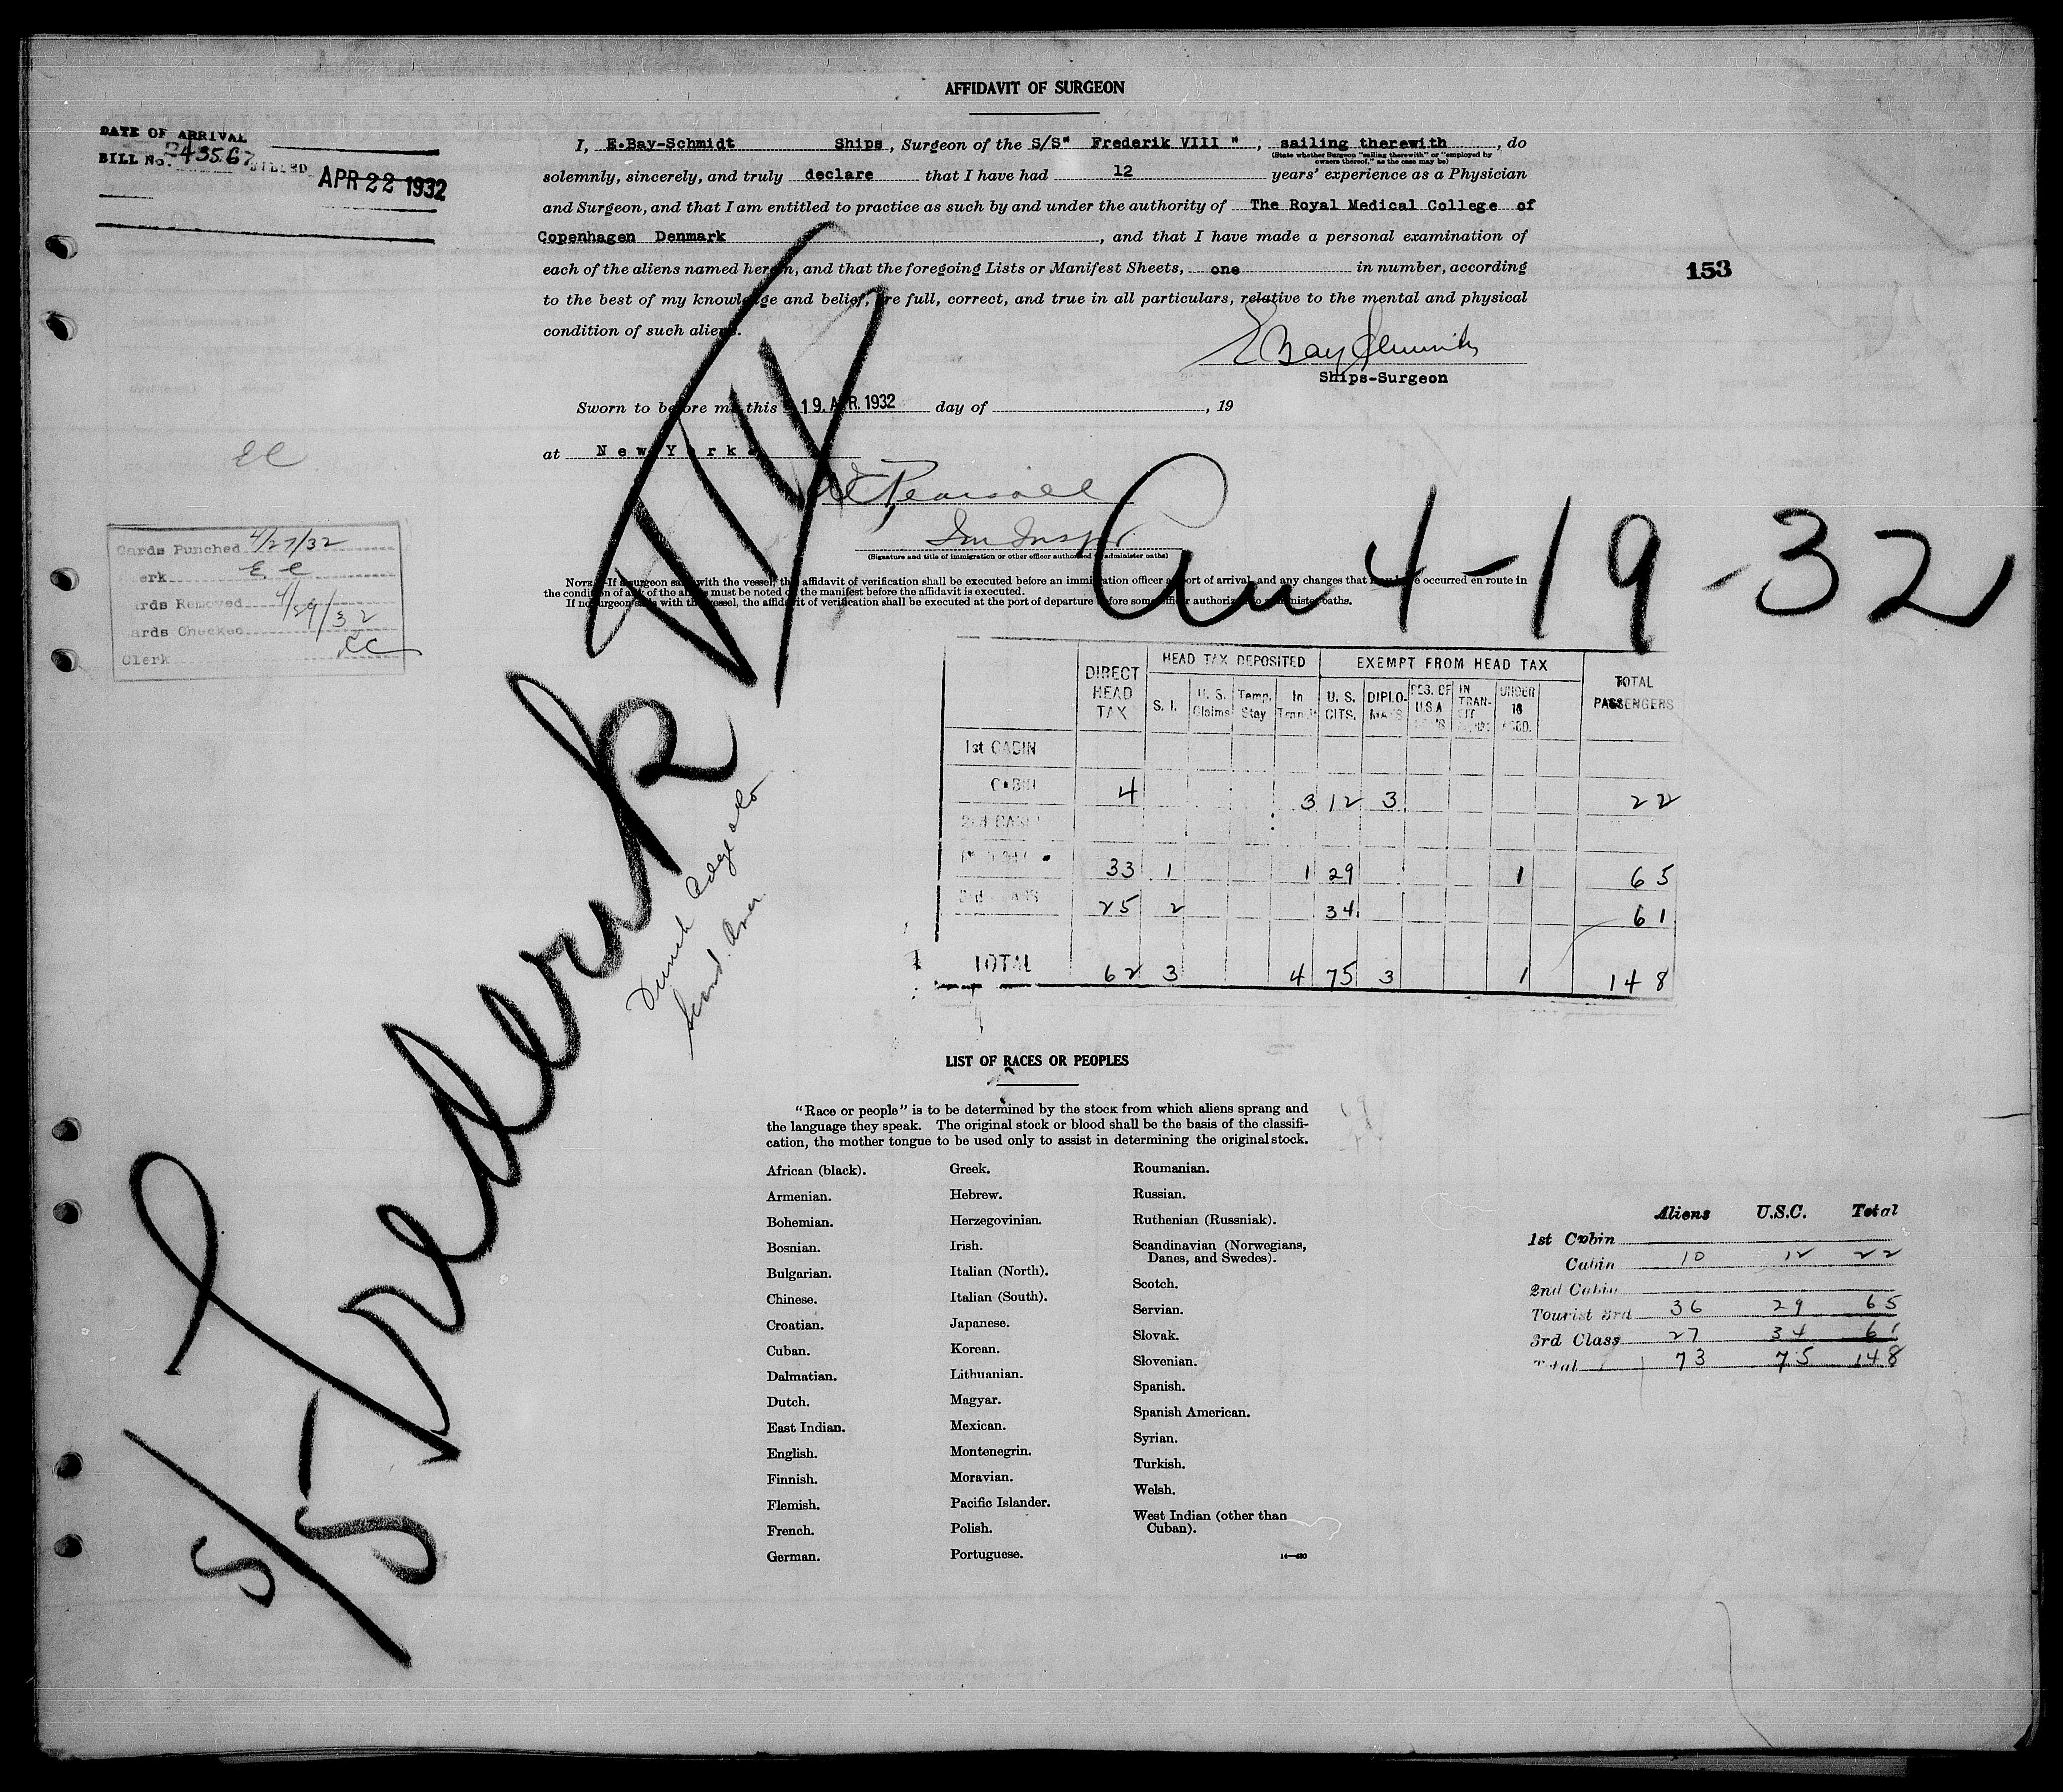 AFFIDAVIT OF SURGEON
DATE OF ARRIVAL
BILL No. BILLED APR 22 1932
I, E.Bay-Schmidt Ships, Surgeon of the S/S" Frederik VIII ", sailing therewith, do
(State whether Surgeon "sailing therewith" or "employed by
owners thereof," as the case may be)
solemnly, sincerely, and truly declare that I have had 12 years' experience as a Physician
and Surgeon, and that I am entitled to practice as such by and under the authority of The Royal Medical College of
Copenhagen Denmark, and that I have made a personal examination of
each of the aliens named herein, and that the foregoing Lists or Manifest Sheets, one in number, according
153
to the best of my knowledge and belief, are full, correct, and true in all particulars, relative to the mental and physical
condition of such aliens.
E Bay Schmidt
Ships-Surgeon
Sworn to before me this 19. APR. 1932 day of , 19
at New York.
Pearsall
Im Inspr.
(Signature and title of immigration or other officer authorized to administer oaths)
NOTE.—If a surgeon sails with the vessel, the affidavit of verification shall be executed before an immigration officer at port of arrival, and any changes that have occurred en route in
the condition of any of the aliens must be noted on the manifest before the affidavit is executed.
If no surgeon sails with the vessel, the affidavit of verification shall be executed at the port of departure before some officer authorized to administer oaths.
EC
Cards Punched 4/27/32
Clerk E C
Cards Removed 4/29/32
Cards Checked
Clerk EC
S/S Frederik VIII
Arr 4-19-32
Scand. Amer.
DIRECT HEAD TAX HEAD TAX DEPOSITED EXEMPT FROM HEAD TAX TOTAL PASSENGERS
S. I. U. S. Claims Temp. Stay In Transit U. S. CITS. DIPLOMATS RES. OF U.S.A. IN TRANSIT UNDER 16 ACCD.
1st CABIN
CABIN 4 3 12 3 22
2nd CABIN
33 1 1 29 1 65
3rd CLASS 25 2 34 61
TOTAL 62 3 4 75 3 1 148
LIST OF RACES OR PEOPLES
"Race or people" is to be determined by the stock from which aliens sprang and
the language they speak. The original stock or blood shall be the basis of the classifi-
cation, the mother tongue to be used only to assist in determining the original stock.
African (black).
Armenian.
Bohemian.
Bosnian.
Bulgarian.
Chinese.
Croatian.
Cuban.
Dalmatian.
Dutch.
East Indian.
English.
Finnish.
Flemish.
French.
German.
Greek.
Hebrew.
Herzegovinian.
Irish.
Italian (North).
Italian (South).
Japanese.
Korean.
Lithuanian.
Magyar.
Mexican.
Montenegrin.
Moravian.
Pacific Islander.
Polish.
Portuguese.
Roumanian.
Russian.
Ruthenian (Russniak).
Scandinavian (Norwegians,
Danes, and Swedes).
Scotch.
Servian.
Slovak.
Slovenian.
Spanish.
Spanish American.
Syrian.
Turkish.
Welsh.
West Indian (other than
Cuban).
Aliens U.S.C. Total
1st Cabin
Cabin 10 12 22
2nd Cabin
Tourist 3rd 36 29 65
3rd Class 27 34 61
Total 73 75 148